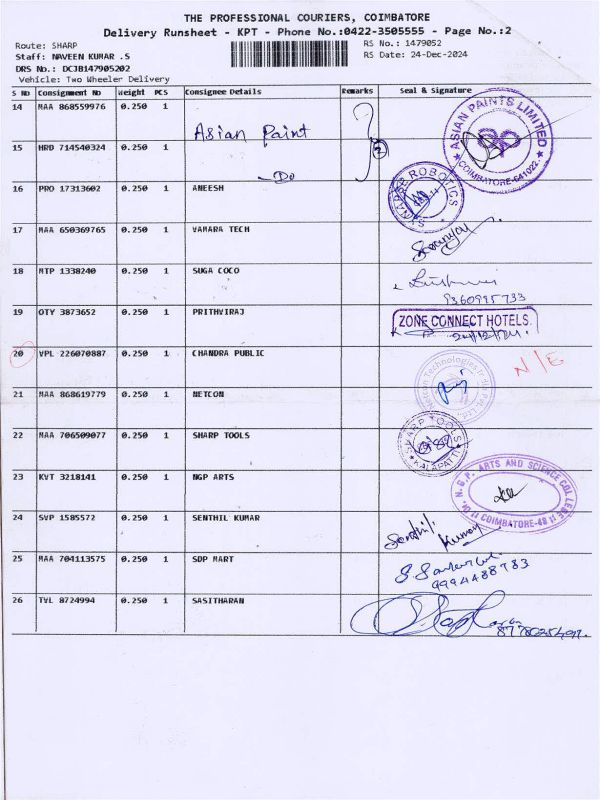 THE PROFESSIONAL COURIERS, COIMBATORE
Delivery Runsheet - KPT - Phone No.:0422-3505555 - Page No.:2
Route: SHARP RS No.: 1479052
Staff: NAVEEN KUMAR .S RS Date: 24-Dec-2024
DRS No.: DCJB147905202
Vehicle: Two Wheeler Delivery
S No Consignment No Weight PCS Consignee Details Remarks Seal & Signature
14 MAA 868559976 0.250 1 Asian Paint ASIAN PAINTS LIMITED COIMBATORE-641022.
15 HRD 714540324 0.250 1 - Do 2
16 PRO 17313602 0.250 1 ANEESH ROBOTICS
17 MAA 650369765 0.250 1 VAMARA TECH
18 MTP 1338240 0.250 1 SUGA COCO
9360995733
19 OTY 3873652 0.250 1 PRITHVIRAJ ZONE CONNECT HOTELS.
20 VPL 226070887 0.250 1 CHANDRA PUBLIC N/E
21 MAA 868619779 0.250 1 NETCON Technologies India Pvt. Ltd.
22 MAA 706509077 0.250 1 SHARP TOOLS SHARP TOOLS KALAPATTI
23 KVT 3218141 0.250 1 NGP ARTS Dr. N. G. P. ARTS AND SCIENCE COLLEGE COIMBATORE-48
24 SVP 1585572 0.250 1 SENTHIL KUMAR Senthil Kumar
25 MAA 704113575 0.250 1 SDP MART
9994488783
26 TVL 8724994 0.250 1 SASITHARAN